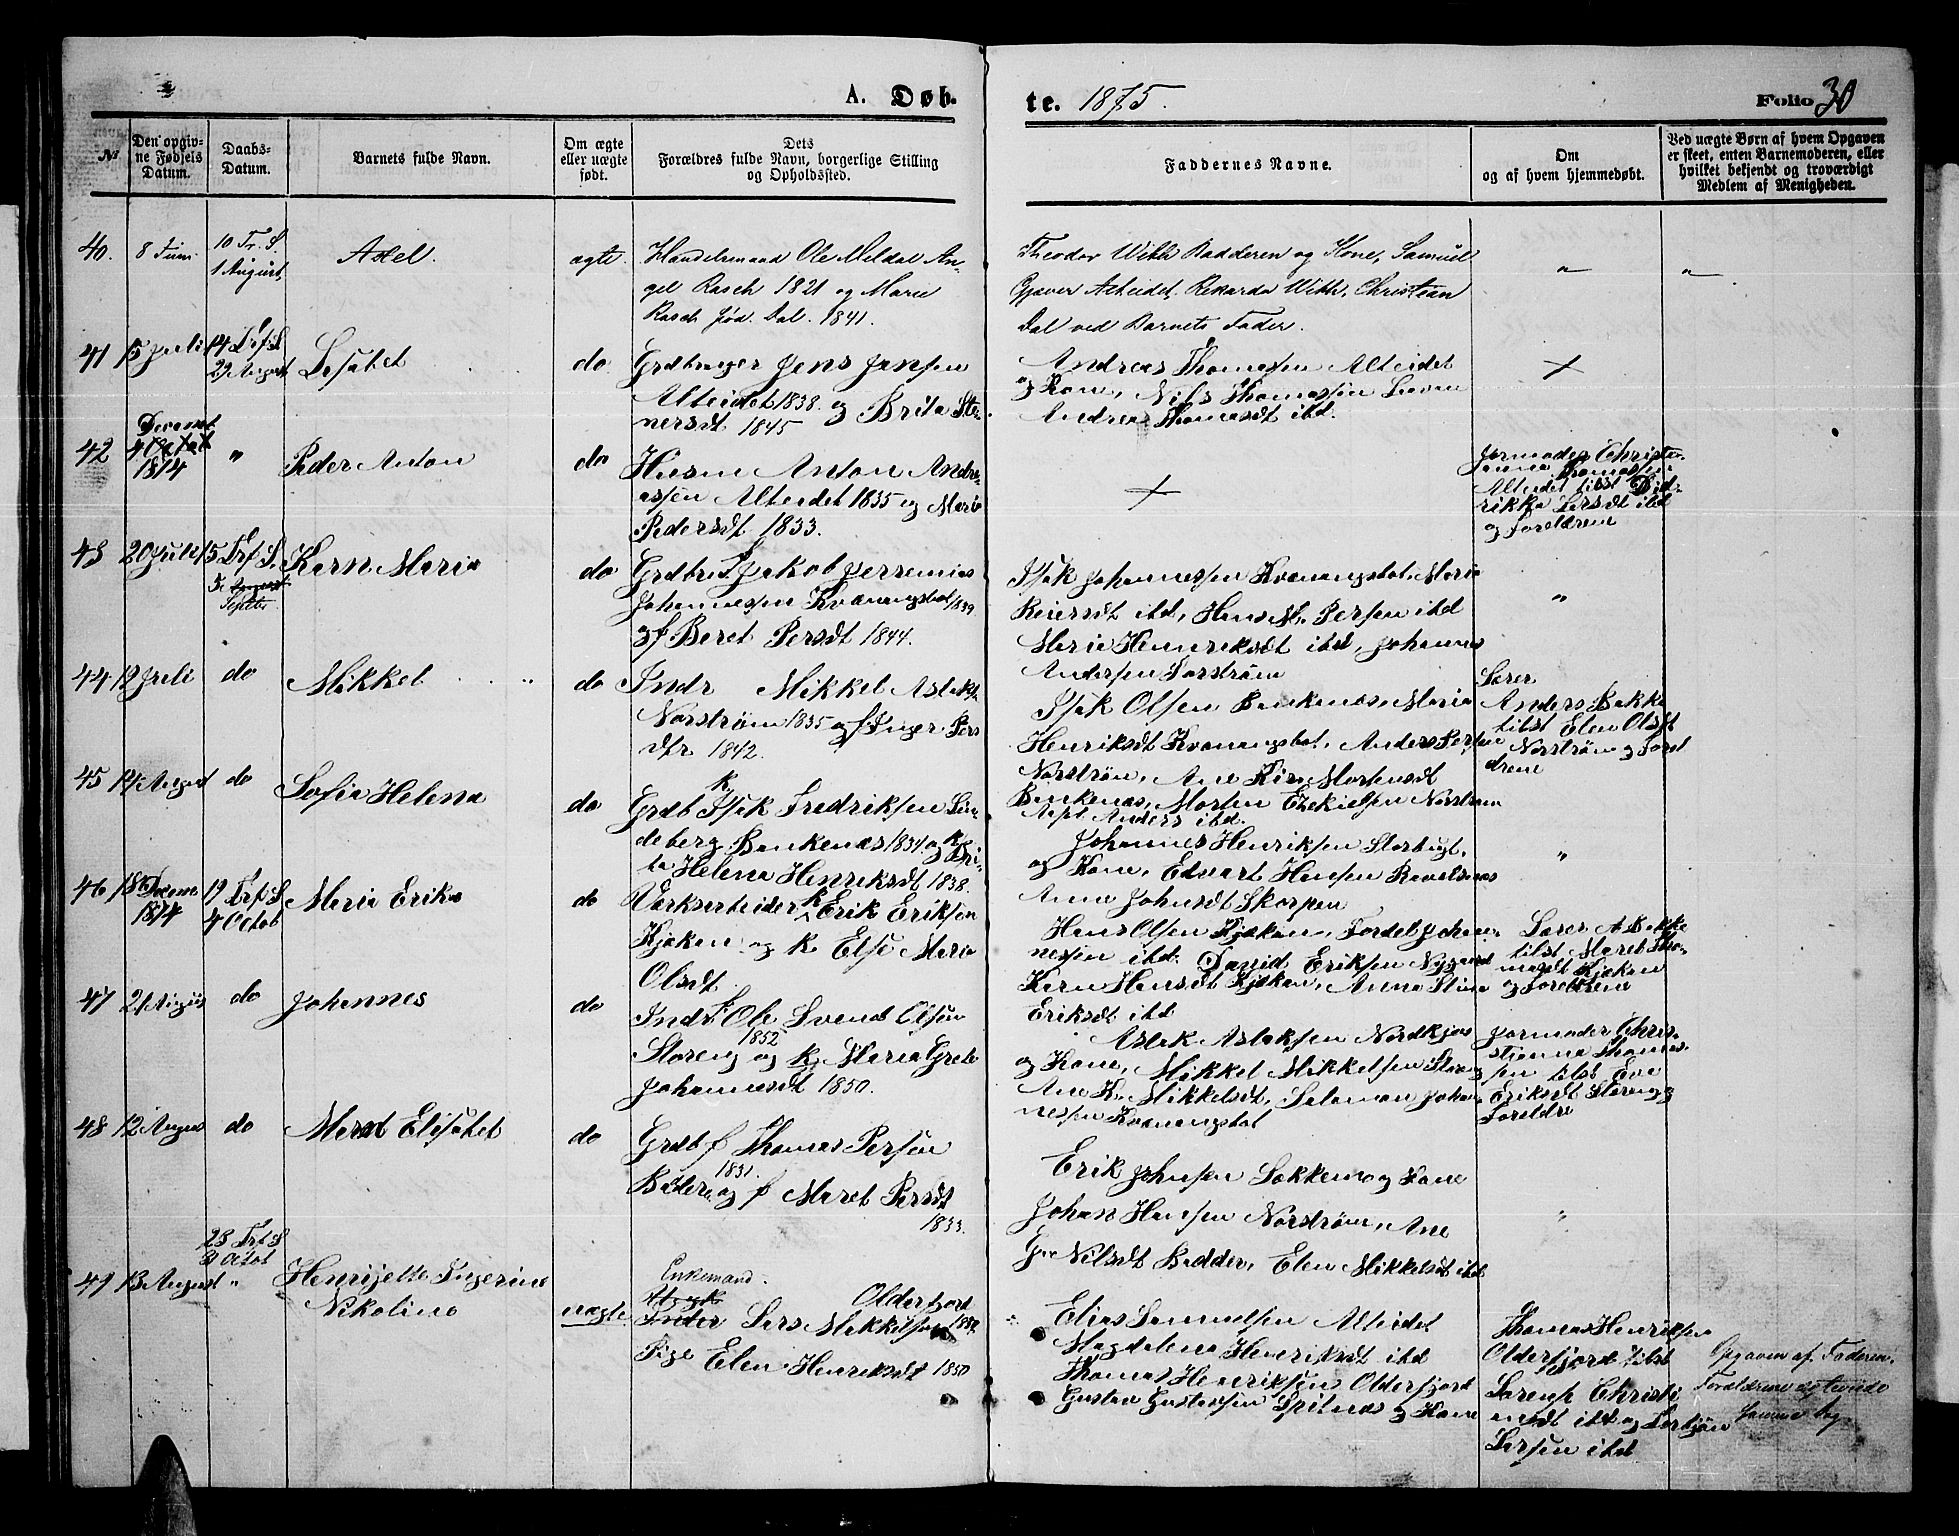 A. Døb.
te. 1875.
Folio 30
№
Den opgiv-
ne Fødsels
Datum.
Daabs-
Datum.
Barnets fulde Navn.
Om ægte
eller uægte
født.
Dets
Forældres fulde Navn, borgerlige Stilling
og Opholdssted.
Faddernes Navne.
Om
og af hvem hjemmedøbt.
Ved uægte Børn af hvem Opgaven
er skeet, enten Barnemoderen, eller
hvilket bekjendt og troværdigt
Medlem af Menigheden.
40. 8 Juni 10 Tr. S.
1 August
Axel. ægte.
Handelsmand Ole Meldal An-
gel Rasch 1821 og Marie
Rasch fød. Dal. 1841.
Theodor With Badderen og Kone, Samuel
Alteidet. Rikarda With, Christian
Dal ved Barnets Fader.
41 15 Juli 14 Trf S.
29 August
Lisabet do
Grdbruger Jens Jensen
Alteidet 1838. og Brita Ste-
nersdt 1845
Andreas Thomassen Alteidet
og Kone, Nils Thomassen
Andrea Thomasdt ibd.
42 4 Octob
1874 "
Peder Anton do
Husm Anton Andre-
assen Alteidet 1835 og Maria
Pedersdt 1833.
Jormoder Christi-
anna Thomassen
Alteidet tilst Did-
rikka Larsdt ibd
og Foreldrene
43 20 Juli 15 Trf S.
5 August
Septbr
Karn Maria do
Grdbr Jakob Jerremias
Johannessen Kvænangsbot 1839
og f Beret Persdt 1844.
Isak Johannessen Kvænangsbot, Maria
Reiersdt ibd, Hans M. Persen ibd
Marie Henreksdt ibd, Johannes
Andersen Sorstrøm
44 12 Juli do
Mikkel do
Indr Mikkel Aslaks
Norstrøm 1835 og f Inger Pers
dtr 1842.
Isak Olsen Burkenæs, Maria
Henriksdt Kvænangsbot, Anders Persen
Norstrøm, Ane Kirs Mortensdt
Burkenæs, Morten Ezekielsen Norstrøm
Anders ibd.
Lærer
Anders Bakke
tilst Elen Olsdt
Norstrøm og Foreld
drene
45 14 August do
Sofia Helena do
Grdb Isak Fredriksen Lin-
deberg Burkenæs 1834 og k Bri-
ta Helena Henriksdt 1838.
Johannes Henriksen Storbugt,
og Kone, Edvart Hansen Ravelsnæs
Anna Johnsdt Skorpen
46 18 Decem
1874
19 Trf S
4 Octob
Maria Erika do
Værksarbeider k Erik Eriksen
Kjækan og k Else Maria
Olsdt
Hans Olsen Kjækan, Fordel Johan-
nessen ibd. David Eriksen Nygaard
Karn Hansdt Kjækan, Anna Stina
Eriksdt ibd
Lærer A Bakke
tilst Maret Tho-
masdt Kjækan
og Foreldrene
47 21 August do
Johannes do
Indr f Ole Svend Olsen
1852
Storeng og k Maria Grete
Johannesdt 1850.
Aslak Aslaksen Nordkjos
og Kone, Mikkel Mikkelsen Storeng
Ane K. Mikkelsdt, Salamon Johan-
nessen Kvænangsbot
Jormoder Chris-
tianna Thomas-
sen tilst Eva
Eriksdt Storeng og
Foreldre
48 12 August do
Marit Elisabet do
Grdb f Thomas Persen
1831.
og f Maret Persdt
1833.
Erik Johnsen Løkkem og Kone
Johan Hansen Norstrøm, Ane
Nilsdt Badder, Elen Mikkelsdt ibd
49 13 August
23 Trf S
31 Octob
Henrijette Ingerine
Nikoline
uægte.
Enkemand.
Olderfjord
Inder Lars Mikkelsen
Pige Elen Henreksdt 1850
Elias Samuelsen Alteidet
Magdalena Henriksdt ibd
Thomas Henriksen Olderfjord
Gustav Gustavsen Spilnæs og Kone
Thomas Henriksen
Olderfjord tilst
Christi
ansdt ibd og Torbjøn
Larsen ibd
Opgaven af Faderen.
Foreldrene ægteviede
samme Dag.